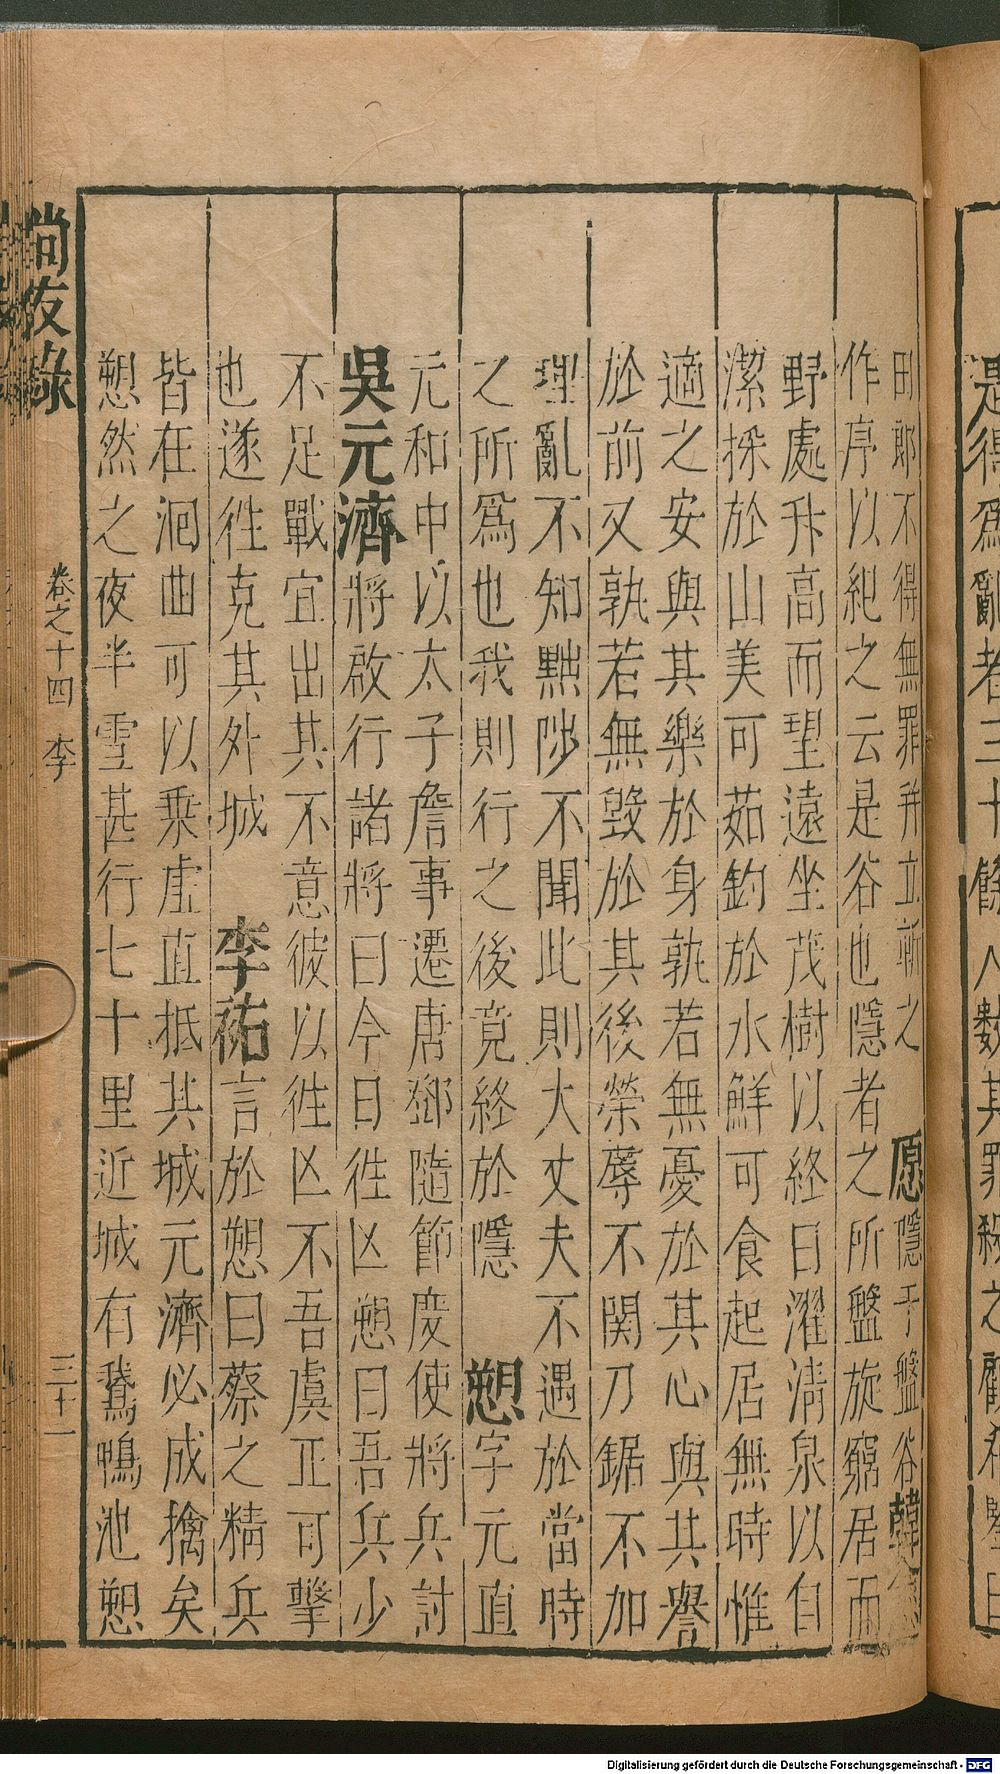 是得為亂者三十餘人數其罪殺之顧
田郎不得無罪并立斬之　愿隱于盤谷韓
作序以紀之云是谷也隱者之所盤旋窮居而
野處升高而望遠坐茂樹以終日濯淸泉以自
潔採於山美可茹釣於水鮮可食起居無時惟
適之安與其樂於身孰若無憂於其心與其譽
於前又孰若無毀於其後榮辱不関刀鋸不加
理亂不知黜陟不聞此則大丈夫不遇於當時
之所爲也我則行之後竟終於隱　愬字元直
元和中以太子詹事遷唐鄧隨節度使將兵討
吳元濟將啟行諸將曰今日徃凶愬曰吾兵少
不足戰宜出其不意彼以徃凶不吾虞正可擊
也遂徃克其外城　李祐言於愬曰蔡之精兵
皆在洄曲可以乗虛直抵其城元濟必成擒矣
愬然之夜半雪甚行七十里近城有鵞鴨池愬
尚友錄　卷之十四　李　三十一
Digitalisierung gefördert durch die Deutsche Forschungsgemeinschaft - DFG